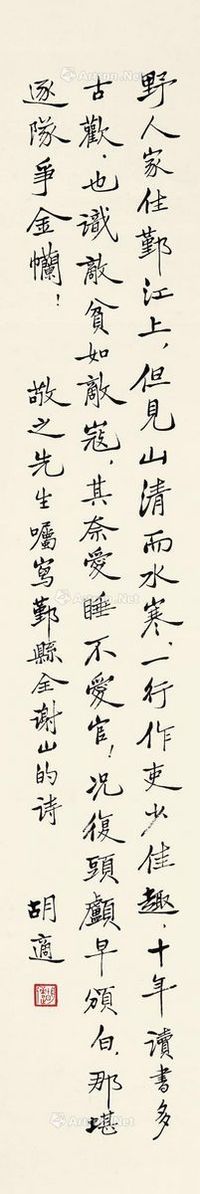 野人家住鄞江上,但見山清而水寒.一行作吏少佳趣,十年讀書多
古歡.也識敵貧如敵寇,其奈愛睡不愛官!況復頭顱早頒白,那堪
逐隊爭金幱!
敬之先生囑寫鄞縣全謝山的诗
胡適